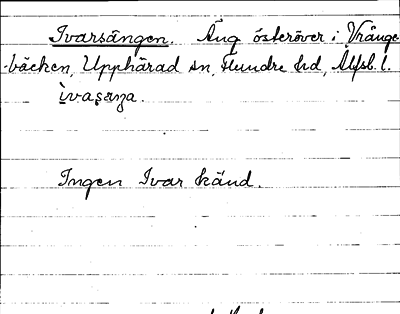 Ivarsängen. Äng österöver i Vränge-
bäcken, Upphärad sn, Flundre hd, Älfsb. l.
ìvasæŋa.
Ingen Ivar känd.